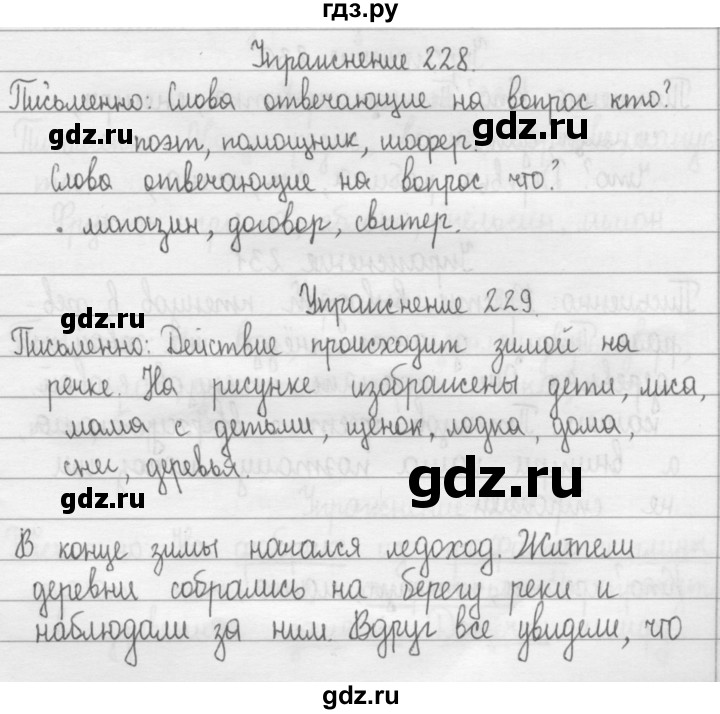 гдз.ру
Упражнение 228.
Письменно: Слова отвечающие на вопрос кто?
gdz.ru
gdz.ru
поэт, помощник, шофер.
Слова отвечающие на вопрос что?
магазин, договор, свитер.
Упражнение 229.
gdz.ru
Письменно: Действие происходит зимой на
речке. На рисунке изображены дети, лиса,
мама с детьми, щенок, лодка, дома,
снег, деревья.
gdz.ru
gdz.ru
В конце зимы начался ледоход. Жители
деревни собрались на берегу реки и
наблюдали за ним. Вдруг все увидели, что
gdz.ru